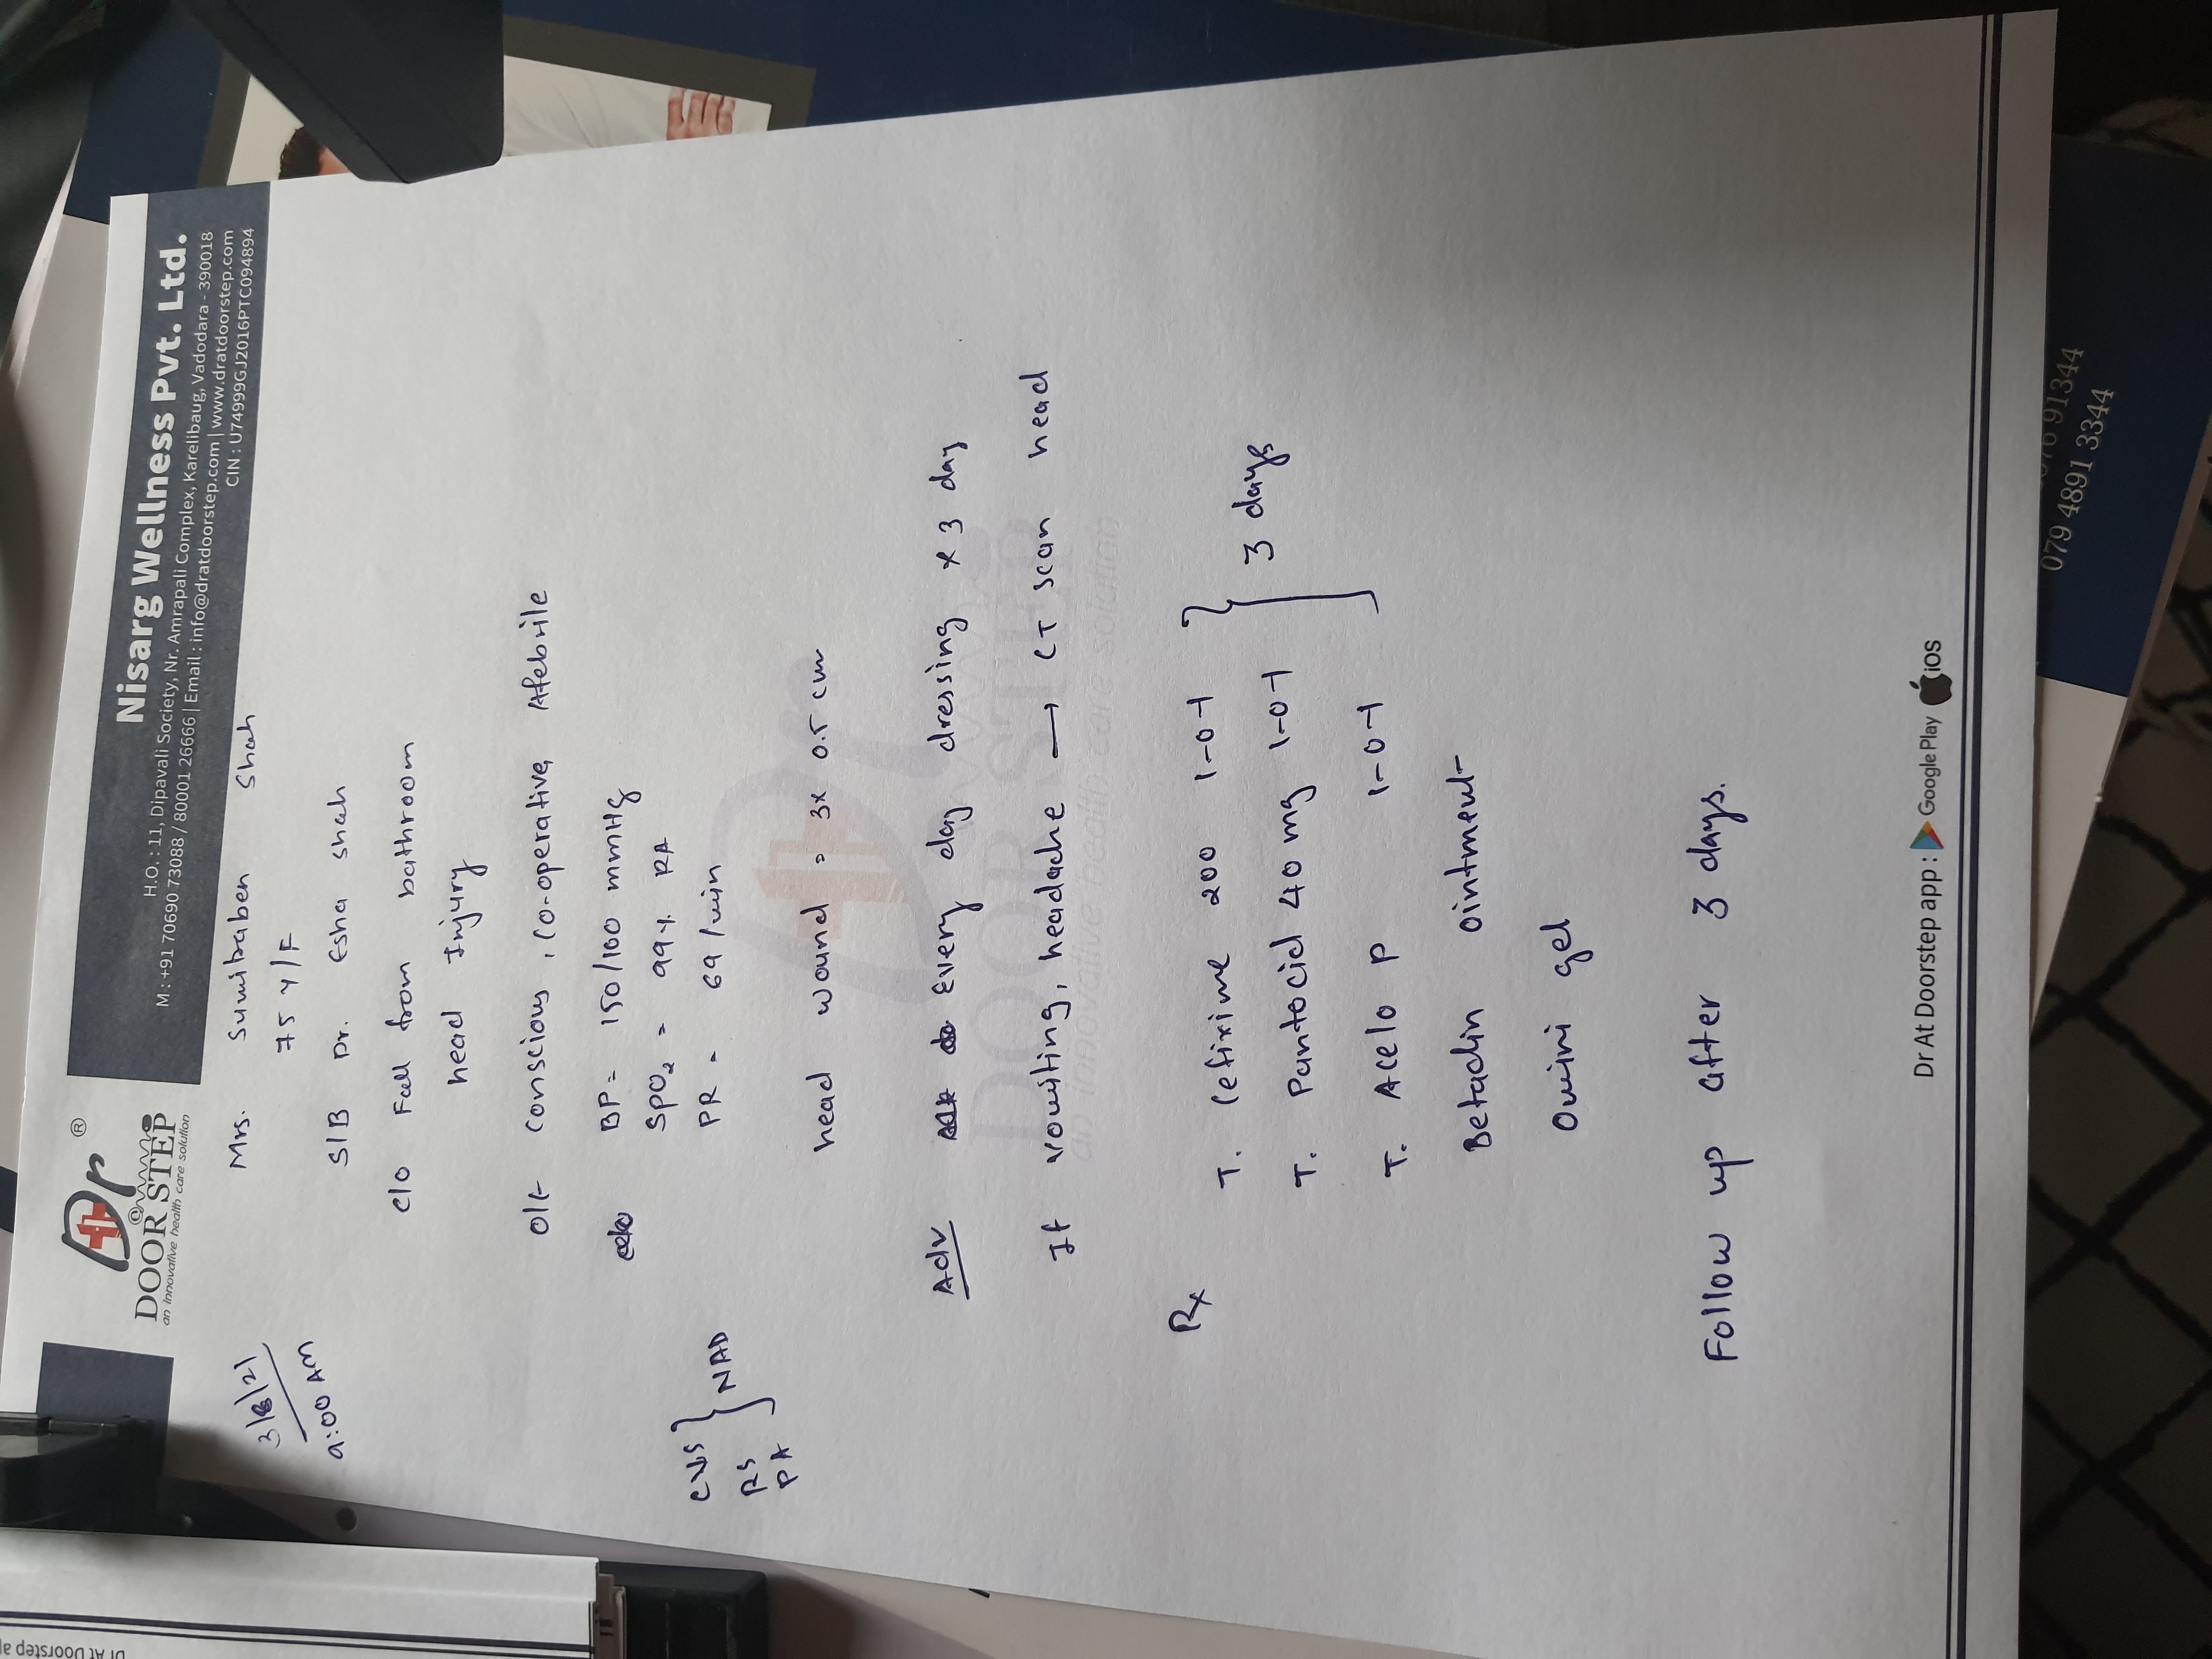 Dr At Doorstep a
Dr ®
@
DOOR STEP
an innovative health care solution
Nisarg Wellness Pvt. Ltd.
H.O. : 11, Dipavali Society, Nr. Amrapali Complex, Karelibaug, Vadodara - 390018
M : +91 70690 73088 / 80001 26666 | Email : info@dratdoorstep.com | www.dratdoorstep.com
CIN : U74999GJ2016PTC094894
3/8/21
9:00 AM
Mrs. Sumitraben Shah
75 Y/F
S/B Dr. Esha Shah
c/o Fall from bathroom
head Injury
O/E conscious, co-operative, Afebrile
BP = 150/100 mmHg
SPO2 = 99% RA
PR = 69 /min
CVS
RS
PA
NAD
head wound = 3 x 0.5 cm
Adv Every day dressing x 3 day
If vomiting, headache → CT scan head
Rx
T. Cefixime 200 1-0-1
T. Pantocid 40 mg 1-0-1
T. Acelo P 1-0-1
3 days
Betadin ointment
Omini gel
Follow up after 3 days.
Dr
DOOR STEP
an innovative health care solution
Dr At Doorstep app : Google Play iOS
91344
079 4891 3344